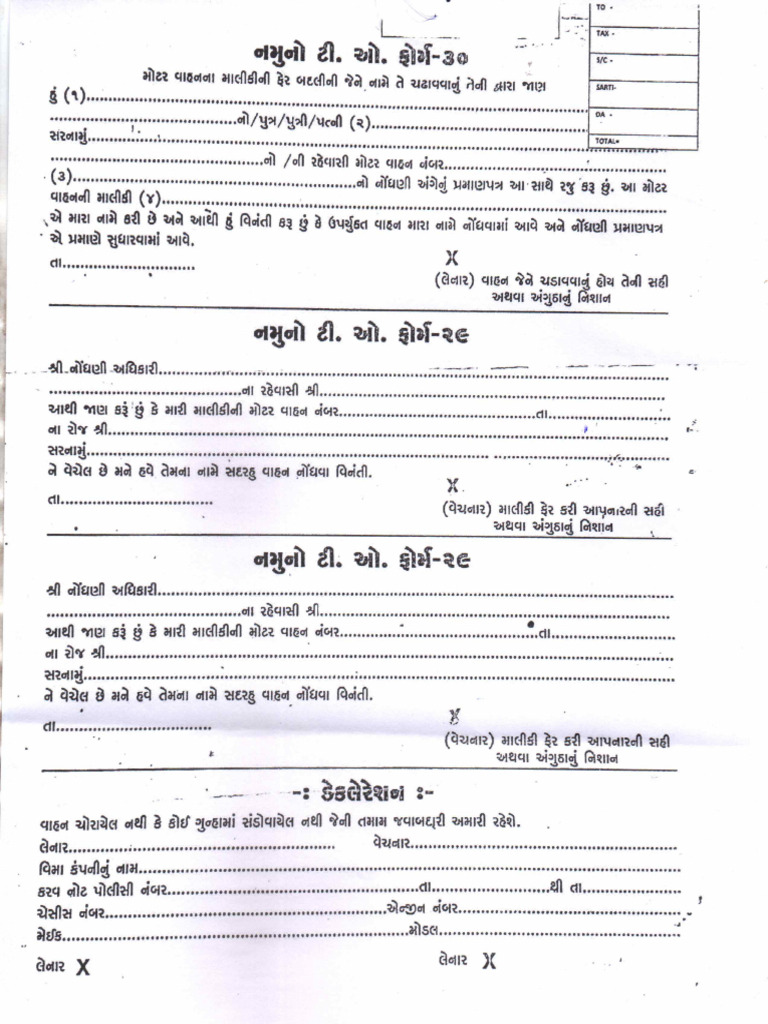 TO -
TAX -
S/C -
SARTI-
DA -
TOTAL=
નમુનો ટી. ઓ. ફોર્મ-૩૦
મોટર વાહનના માલીકીની ફેર બદલીની જેને નામે તે ચઢાવવાનું તેની દ્વારા જાણ
હું (૧)................................................................
................................નો/પુત્ર/પુત્રી/પત્ની (૨)................................
સરનામું................................................................
................................નો /ની રહેવાસી મોટર વાહન નંબર................................
(૩)................................નો નોંધણી અંગેનું પ્રમાણપત્ર આ સાથે રજુ કરૂ છું. આ મોટર
વાહનની માલીકી (૪)................................................................
એ મારા નામે કરી છે અને આથી હું વિનંતી કરૂ છું કે ઉપર્યુકત વાહન મારા નામે નોંધવામાં આવે અને નોંધણી પ્રમાણપત્ર
એ પ્રમાણે સુધારવામાં આવે.
તા................................ X
(લેનાર) વાહન જેને ચડાવવાનું હોય તેની સહી
અથવા અંગુઠાનું નિશાન
નમુનો ટી. ઓ. ફોર્મ-૨૯
શ્રી નોંધણી અધિકારી................................................................
................................ના રહેવાસી શ્રી................................
આથી જાણ કરૂં છું કે મારી માલીકીની મોટર વાહન નંબર................................તા................................
ના રોજ શ્રી................................................................
સરનામું................................................................
ને વેચેલ છે મને હવે તેમના નામે સદરહુ વાહન નોંધવા વિનંતી.
તા................................ X
(વેચનાર) માલીકી ફેર કરી આપનારની સહી
અથવા અંગુઠાનું નિશાન
નમુનો ટી. ઓ. ફોર્મ-૨૯
શ્રી નોંધણી અધિકારી................................................................
................................ના રહેવાસી શ્રી................................
આથી જાણ કરૂં છું કે મારી માલીકીની મોટર વાહન નંબર................................તા................................
ના રોજ શ્રી................................................................
સરનામું................................................................
ને વેચેલ છે મને હવે તેમના નામે સદરહુ વાહન નોંધવા વિનંતી.
તા................................ X
(વેચનાર) માલીકી ફેર કરી આપનારની સહી
અથવા અંગુઠાનું નિશાન
-: ડેકલેરેશન :-
વાહન ચોરાયેલ નથી કે કોઈ ગુન્હામાં સંડોવાયેલ નથી જેની તમામ જવાબદારી અમારી રહેશે.
લેનાર................................ વેચનાર................................
વિમા કંપનીનું નામ................................................................
કરવ નોટ પોલીસી નંબર................................તા................................થી તા................................
ચેસીસ નંબર................................એન્જીન નંબર................................
મેઈક................................મોડલ................................
લેનાર X લેનાર X